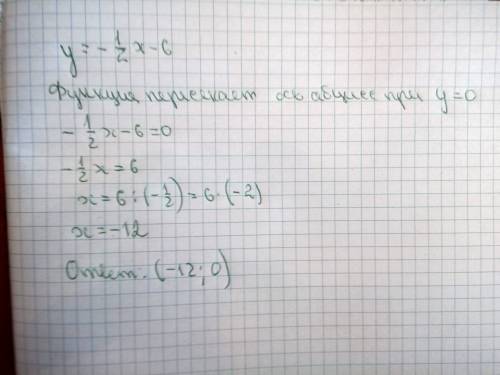 y = -1/2 x - 6
Функция пересекает ось абцисс при y=0
-1/2 x - 6 = 0
-1/2 x = 6
x = 6 : (-1/2) = 6 · (-2)
x = -12
Ответ. (-12; 0)